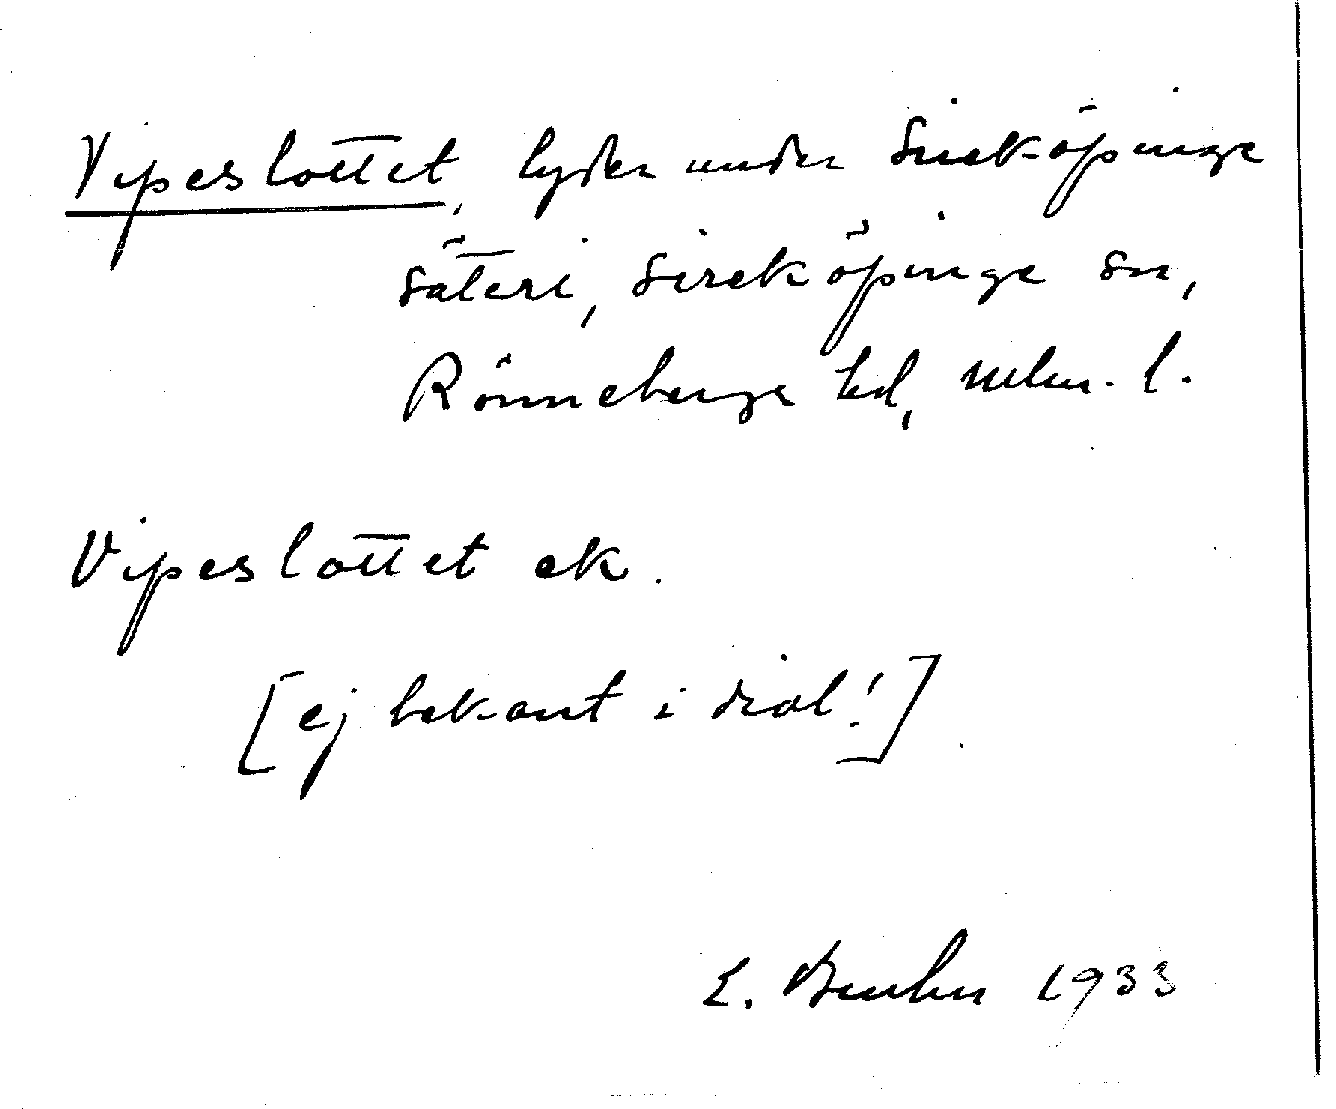 Vipeslottet, lyder under Sireköpinge
säteri, Sireköpinge sn,
Rönneberga hd, Mlm. l.
Vipeslottet ek.
[ej bekant i dial!]
E. 1933